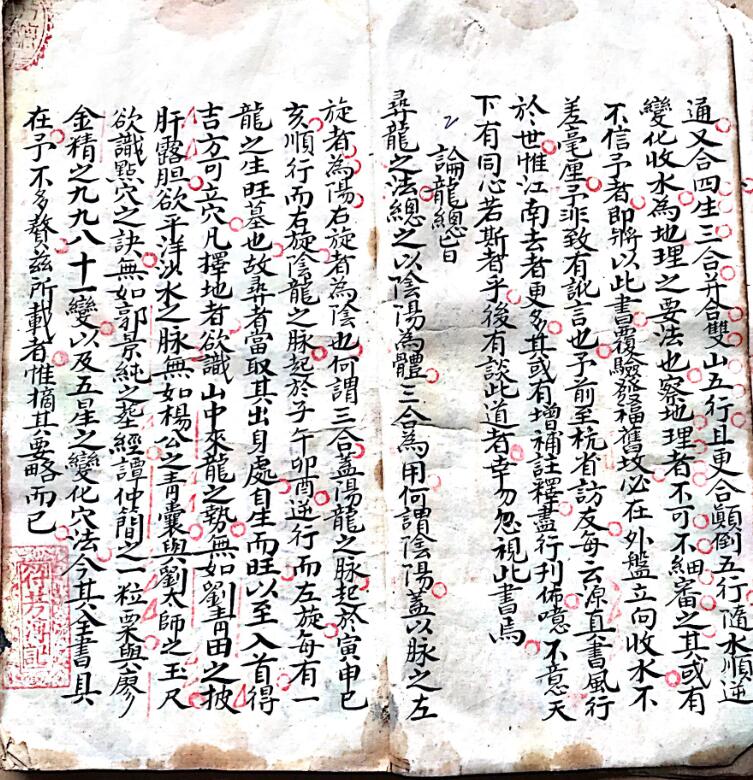 通又合四生三合并合雙山五行且更合顛倒五行隨水順逆
變化收水為地理之要法也察地理者不可不細審之其或有
不信予者即將以此書覆驗發福舊坟必在外盤立向收水不
差毫厘予非致有訛言也予前至杭省訪友每云源真書風行
於世惟江南去者更多其或有增補註釋盡行刊佈噫不意天
下有同心若斯者乎後有談此道者幸勿忽視此書焉
論龍總旨
尋龍之法總之以陰陽為體三合為用何謂陰陽蓋以脉之左
旋者為陽右旋者為陰也何謂三合蓋陽龍之脉起於寅申巳
亥順行而右旋陰龍之脉起於子午卯酉逆行而左旋每有一
龍之生旺墓也故尋者當取其出身處自生而旺以至入首得
吉方可立穴凡擇地者欲識山中來龍之勢無如劉青田之披
肝露胆欲平洋沙水之脉無如楊公之青囊與劉太師之玉尺
欲識點穴之訣無如郭景純之塟經譚仲簡之一粒粟與廖
金精之九九八十一變以及五星之變化穴法今其全書具
在予不多贅茲所載者惟摘其要畧而已